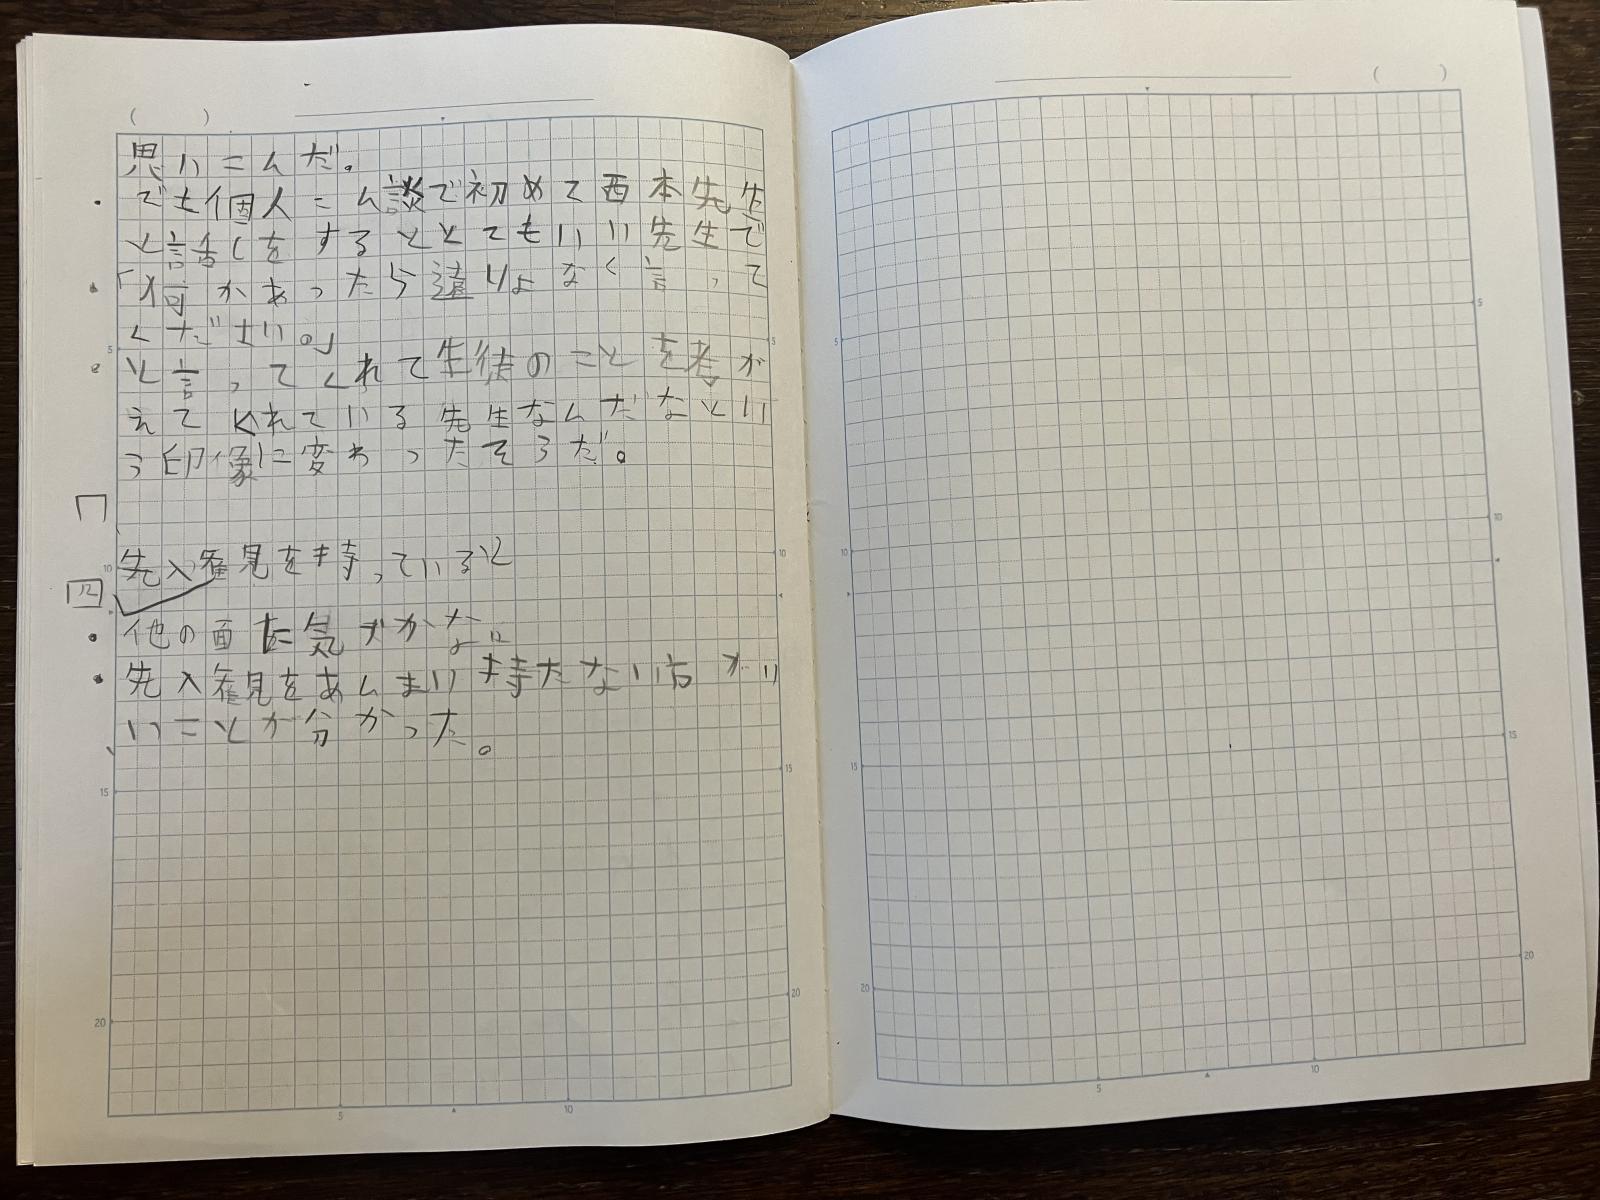 思いこんだ。
でも個人こん談で初めて西本先生
と話しをするととてもいい先生で
「何かあったら遠りょなく言って
ください。」
と言ってくれて生徒のことを考が
えてくれている先生なんだなとい
う印像に変わったそうだ。
先入観見を持っていると
四
他の面に気づかな
先入観見をあんまり持たない方がい
いことが分かった。
( )
( )
5
10
15
20
5
10
15
20
5
10
5
10
15
20
5
10
15
20
5
10